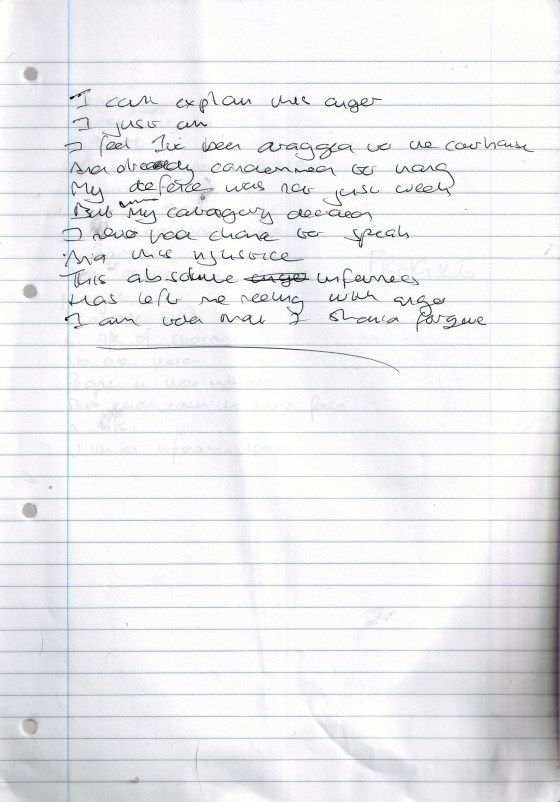 I cant explain this anger
I just am
I feel I've been dragged to the courthouse
And already condemned to hang
My defence was not just weak
But my category denied
I never had chance to speak
And this injustice
This absolute anger unfairness
Has left me reeling with anger
I am told that I should forgive